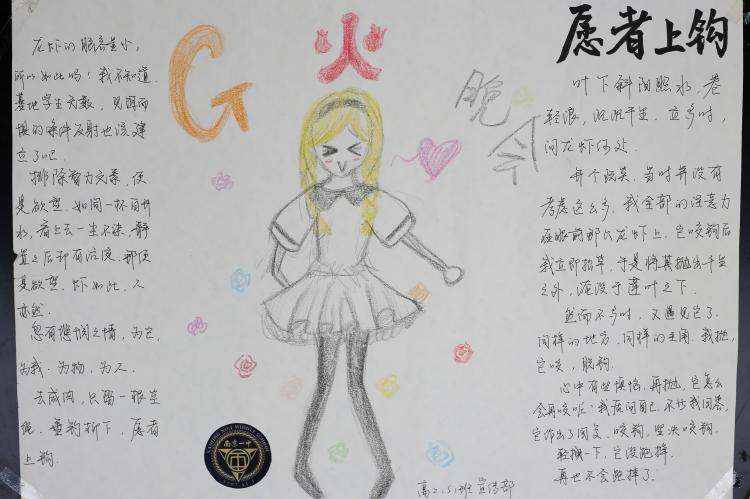 愿者上钩
叶下斜阳照水，卷
轻浪，沉沉千里。立多时，
问龙虾何处。
开个玩笑。当时并没有
考虑这么多。我全部的注意力
在眼前那只龙虾上。它咬钩后
我立即抬竿，于是将其抛出千里
之外，淹没于莲叶之下。
然而不多时，又遇见它了。
同样的地方，同样的主角。我抛，
它咬，脱钩。
心中有些懊恼，再抛，它怎么
会再咬呢？我质问自己。不妨我回答，
它给出了回复，咬钩，坚决咬钩。
轻摘一下，它没跑掉。
再也不会跑掉了。
龙虾的脑容量小，
所以如此吗！我不知道。
基地学生文数，见饵而
惧的条件反射也该建
立了吧。
排除智力文系，便
是欲望。如同一杯白开
水，看上去一尘不染，静
置之后却有沉淀。那便
是欲望。虾如此，人
亦然。
忽有悲悯之情，为它，
为我。为物，为人。
去成肉，只留一根空
绳。垂钩柳下，愿者
上钩。
G
火
晚
会
高二、5、班宣传部
NANJING NO.1 MIDDLE SCHOOL
南京一中